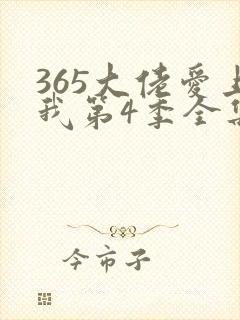 365大佬爱上
我第4季全集
今市子